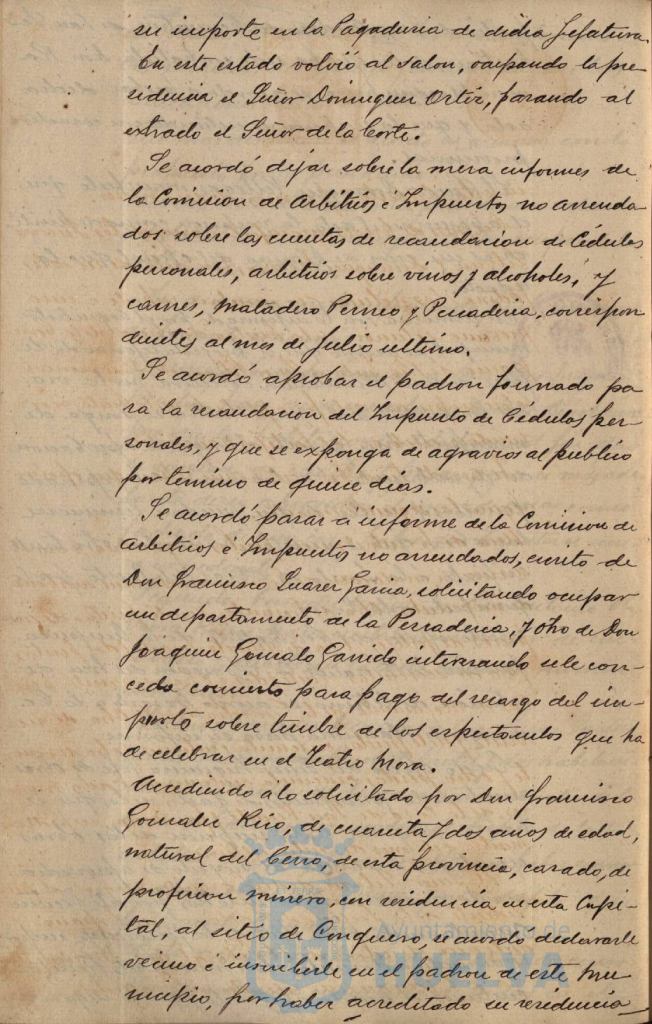 su importe en la Pagaduria de dicha Jefatura.
En este estado volvió al salon, ocupando la pre-
sidencia el Señor Dominguez Ortiz, pasando al
estrado el Señor de la Corte.
Se acordó dejar sobre la mesa informes de
la Comision de Arbitrios é Impuestos no arrenda
dos sobre las cuentas de recaudacion de Cédulas
personales, arbitrios sobre vinos y alcoholes, y
carnes, Matadero Perneo y Pescaderia, correspon
dientes al mes de Julio ultimo.
Se acordó aprobar el padron formado pa
ra la recaudacion del Impuesto de Cédulas per-
sonales, y que se exponga de agravios al publico
por termino de quince dias.
Se acordó pasar á informe de la Comision de
Arbitrios é Impuestos no arrendados, escrito de
Don Francisco Suarez Garcia, solicitando ocupar
un departamento de la Pescaderia, y otro de Don
Joaquin Gonzalo Garrido interesando se le con-
ceda concierto para pago del recargo del im-
puesto sobre timbre de los espectaculos que ha
de celebrar en el Teatro Mora.
Accediendo á lo solicitado por Don Francisco
Gonzalez Rico, de cuarenta y dos años de edad,
natural del Cerro, de esta provincia, casado, de
profesion minero, con residencia en esta Capi-
tal, al sitio de Conquero, se acordó declararle
vecino é inscribirle en el padron de este Mu-
nicipio, por haber acreditado su residencia
Ayuntamiento de
HUELVA